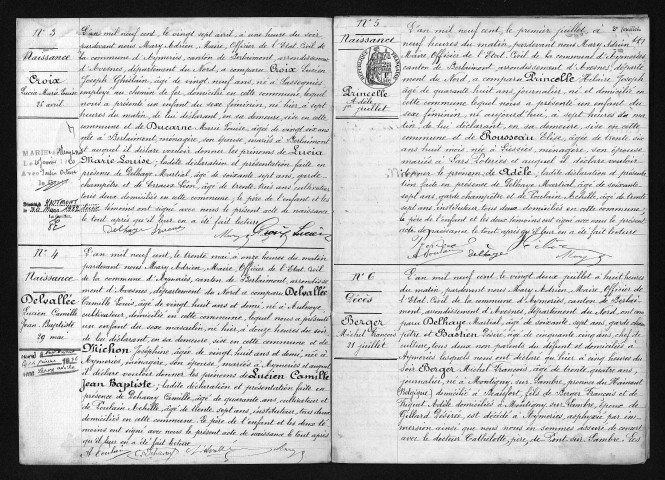 N° 3
Naissance
Croix
Lucia Marie Louise
L'an mil neuf cent, le vingt sept avril, à une heure du soir
pardevant nous Mary Adrien, Maire, Officier de l'Etat Civil de
la commune d'Aymeries, canton de Berlaimont, arrondissement
d'Avesnes, département du Nord, a comparu Croix Lucien
Joseph Ghislain, âgé de vingt neuf ans, né à
employé au chemin de fer, domicilié en cette commune, lequel
nous a présenté un enfant du sexe féminin, né hier, à sept
heures du matin, de lui déclarant, en sa demeure, sise en cette
commune et de Ducarne Marie Louise, âgée de vingt six ans
née à Berlaimont, ménagère, son épouse, mariés à Berlaimont
auquel il déclare vouloir donner les prénoms de Lucia
Marie Louise; ladite déclaration et présentation faite en
présence de Delhaye Martial, âgé de soixante sept ans, garde
champêtre et de Léon, âgé de trente six ans, cultivateur
tous deux domiciliés en cette commune; le père de l'enfant et les
témoins ont signé avec nous le présent acte de naissance
le tout après qu'il leur en a été fait lecture
Delhaye Mary Croix Lucien
N° 4
Naissance
Delvallée
Lucien Camille
Jean Baptiste
29 mai
L'an mil neuf cent, le trente mai à onze heures du matin
pardevant nous Mary Adrien, Maire, Officier de l'Etat Civil
de la commune d'Aymeries, canton de Berlaimont, arrondissement
d'Avesnes, département du Nord a comparu Delvallée
Camille Louis, âgé de vingt huit ans et demi, né à
cultivateur, domicilié en cette commune, lequel nous a présenté
un enfant du sexe masculin, né hier, à douze heures du soir
de lui déclarant, en sa demeure, sise en cette commune et de
Michon Joséphine, âgée de vingt huit ans et demi, née à
Aymeries, ménagère, son épouse, mariés à Aymeries et auquel
il déclare vouloir donner les prénoms de Lucien Camille
Jean Baptiste; ladite déclaration et présentation faite en
présence de Camille, âgé de quarante ans, cultivateur et
de Poulain Achille, âgé de trente sept ans, instituteur, tous deux
domiciliés en cette commune. Le père de l'enfant et les deux té-
moins ont signé avec nous le présent acte de naissance le tout après
qu'il leur en a été fait lecture
A Poulain Delvallée Mary
N° 5
Naissance
Princelle
Adèle
1er juillet
2e feuillet
L'an mil neuf cent, le premier juillet, à
neuf heures du matin, pardevant nous Mary Adrien
Maire, Officier de l'Etat Civil de la commune d'Aymeries
canton de Berlaimont, arrondissement d'Avesnes, département
du Nord, a comparu Princelle Hilaire Joseph
âgé de quarante huit ans, journalier, né et domicilié en
cette commune lequel nous a présenté un enfant du sexe
féminin, né aujourd'hui, à sept heures du ma-
tin, de lui déclarant, en sa demeure sise en cette
commune et de Rousseau Elise, âgée de trente
ans huit mois, née à Liessies, ménagère, son épouse
mariés à Sars Poteries et auquel il déclare vouloir
donner le prénom de Adèle; ladite déclaration et présenta-
tion faite en présence de Delhaye Martial, âgé de soixante
sept ans, garde champêtre et de Poulain Achille, âgé de trente
sept ans, instituteur, tous deux domiciliés en cette commune.
Le père de l'enfant et les deux témoins ont signé avec nous le présent
acte de naissance, le tout après qu'il leur en a été fait lecture
A Poulain Delhaye Mary
N° 6
Décès
Berger
Michel François
21 juillet
L'an mil neuf cent, le vingt deux juillet à huit heures
du matin, pardevant nous Mary Adrien, Maire, Officier de
l'Etat Civil de la commune d'Aymeries, canton de Berlai-
mont, arrondissement d'Avesnes, département du Nord, ont com-
paru Delhaye Martial, âgé de soixante sept ans, garde cham-
pêtre, et Bastien Désiré, âgé de cinquante cinq ans,
tous deux non parents du défunt et domiciliés à
Aymeries lesquels nous ont déclaré qu'hier à cinq heures du
soir Berger Michel François, âgé de trente quatre ans,
journalier, né à Montigny, sur Sambre, province du Hainaut
(Belgique) domicilié à Beaufort, fils de Berger François et de
Adèle domiciliés à Montigny, sur Sambre, époux de
Désirée est décédé à Aymeries, asphyxié par im-
mersion ainsi que nous nous en sommes assuré de concert
avec le docteur père, de Pont sur Sambre. Les